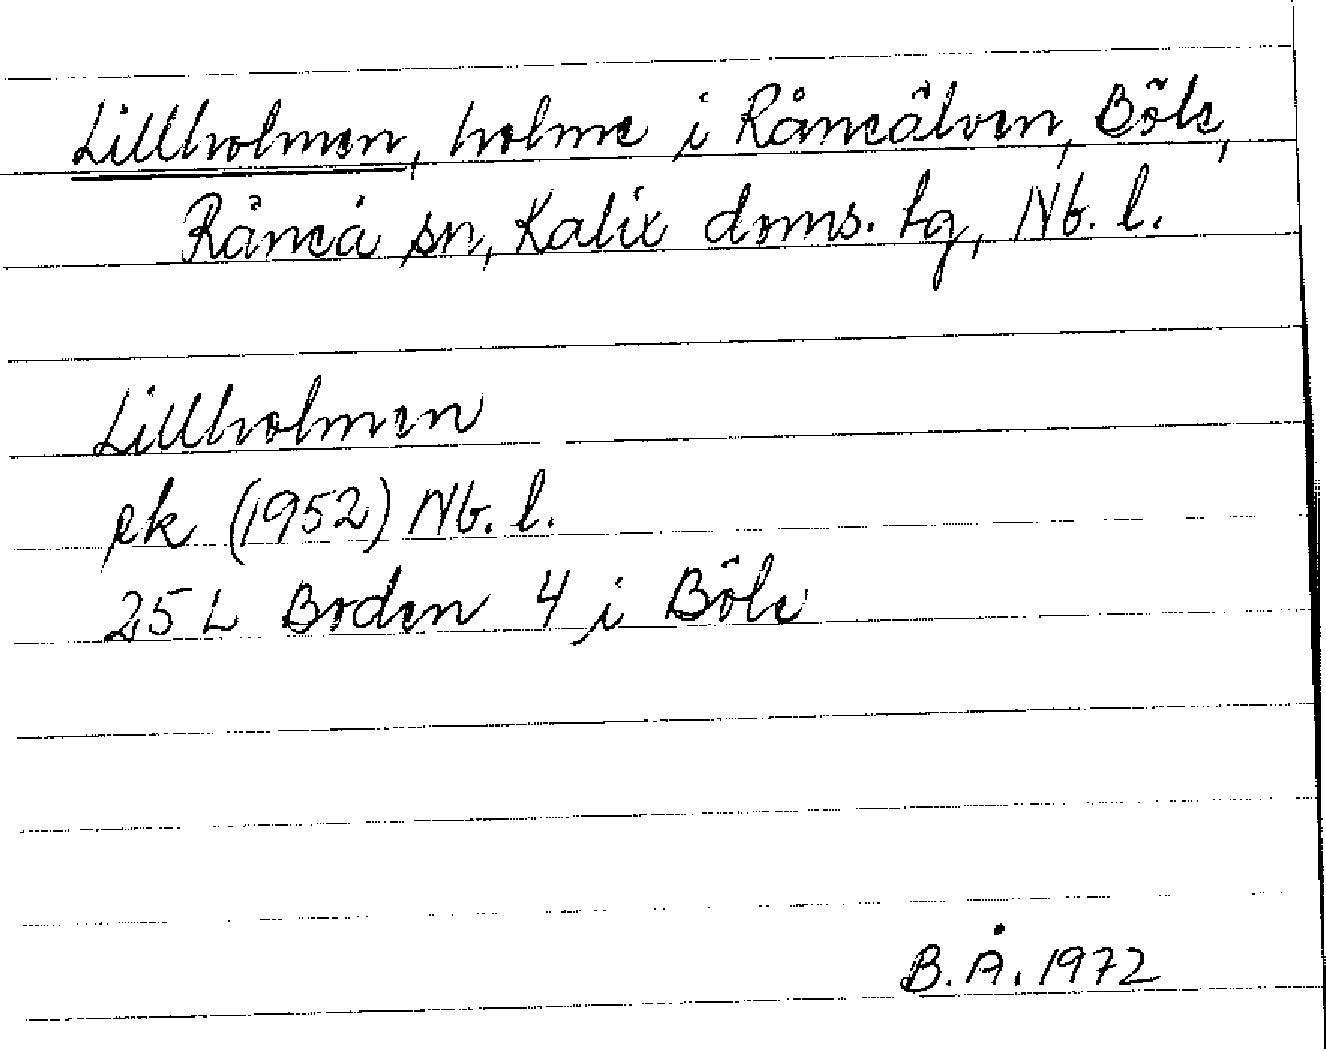 Lillholmen, holme i Råneälven, Böle,
Råneå sn, Kalix doms. tg, Nb. l.
Lillholmen
ek (1952) Nb. l.
25 L Boden 4 i Böle
B. Å. 1972